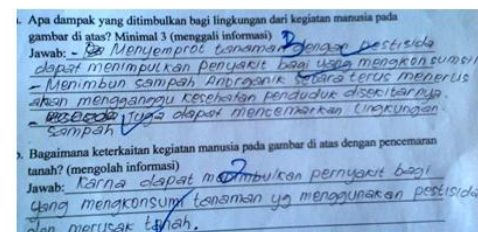 . Apa dampak yang ditimbulkan bagi lingkungan dari kegiatan manusia pada
gambar di atas? Minimal 3 (menggali informasi)
Jawab: - Menyemprot tanaman dengan pestisida
dapat menimpulkan penyakit bagi yang mengkonsumsi
- Menimbun sampah Anorganik setara terus menerus
akan mengganggu kesehatan penduduk disekitarnya.
- Juga dapat mencemarkan lingkungan
sampah
b. Bagaimana keterkaitan kegiatan manusia pada gambar di atas dengan pencemaran
tanah? (mengolah informasi)
Jawab: Karna dapat menimbulkan pernyakit bagi
yang mengkonsumi tanaman yg menggunakan pestisida
dan merusak tanah.